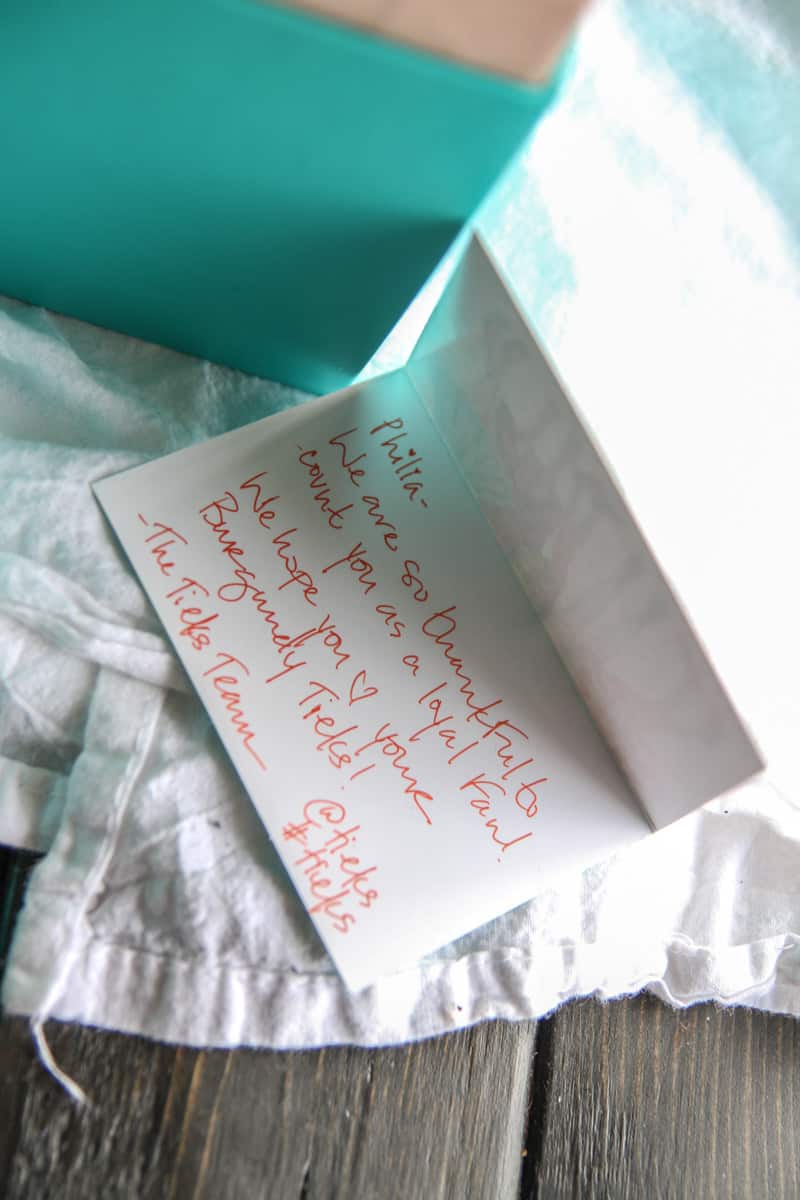 Philia-
We are so thankful to
count you as a loyal fan!
We hope you ♡ your
Burgundy Tieks!
-The Tieks Team
@tieks
#tieks